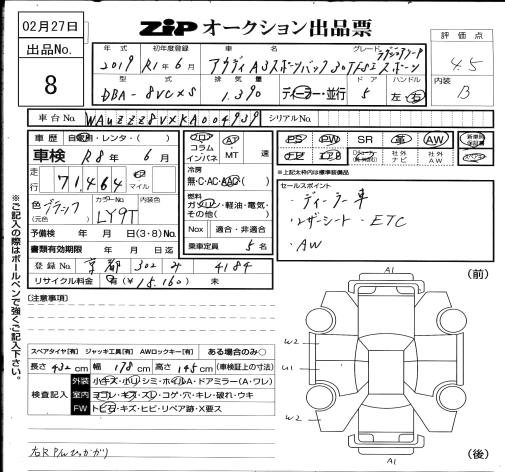 02月27日
ZIP オークション出品票
出品No.
8
評価点
4.5
内装
B
年式 初年度登録 車名 グレード
2019 R1年6月 アウディA3スポーツバック 30TFSI スポーツ
型式 排気量 ドア ハンドル
DBA-8VCXS 1,390 ディーラー・並行 5 左・右
車台No. WAUZZZ8VXKA004939 シリアルNo.
車歴 自家用・レンタ・( )
車検 R8年 6月
走行 71,464 km マイル
色 ブラック (元色) カラーNo. LY9T 内装色
予備検 年 月 日(3・8)No.
書類有効期限 年 月 日迄
登録No. 京都 302 4184
リサイクル料金 有(¥15,160) 未
フロア コラム インパネ
AT ・ MT 速
冷房 無・C・AC・AAC・( )
燃料 ガソリン・軽油・電気・その他( )
Nox 適合・非適合
乗車定員 5名
PS PW SR 革 AW 新車時保証書
ナビ エアB 社外ナビ 社外AW
※上記太枠内は標準装備品
セールスポイント
・ディーラー車
・レザーシート・ETC
・AW
※ご記入の際はボールペンで強くご記入下さい。
[注意事項]
スペアタイヤ[有] ジャッキ工具[有] AWロックキー[有] ある場合のみ○
長さ 432 cm 幅 178 cm 高さ 145 cm (車検証上の寸法)
検査記入
外装 小キズ・ホリ・シミ・ホイルA・ドアミラー(A・ワレ)
室内 ヨゴレ・キズ・スレ・コゲ・穴・キレ・破れ・ウキ
FW トビ石・キズ・ヒビ・リペア跡・X要ス
右RPんひっかかり
(前)
A1
W2
U1
W2
A1
(後)